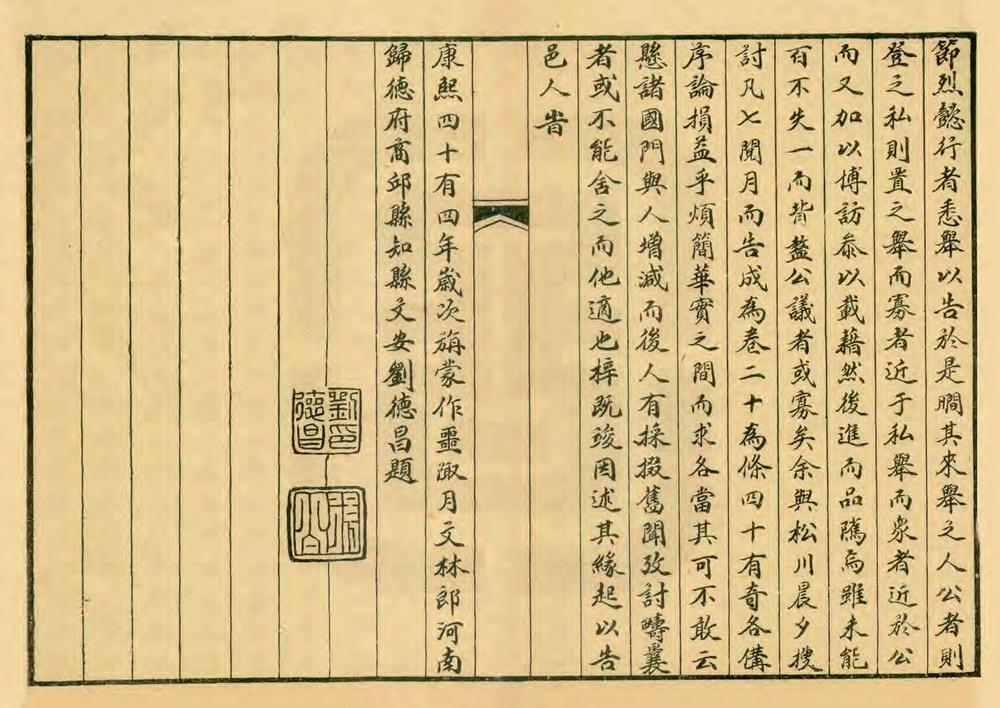 節烈懿行者悉舉以告於是瞷其來舉之人公者則
登之私則置之舉而寡者近于私舉而衆者近於公
而又加以博訪叅以載籍然後進而品隲焉雖未能
百不失一而背盭公議者或寡矣余與松川晨夕搜
討凡七閱月而告成為卷二十為條四十有奇各傋
序論損益乎煩簡華實之間而求各當其可不敢云
懸諸國門與人增減而後人有採掇舊聞攷討疇曩
者或不能舍之而他適也梓既竣因述其緣起以告
邑人旹
康熙四十有四年嵗次旃蒙作噩陬月文林郎河南
歸德府商邱縣知縣文安劉德昌題
劉德昌印